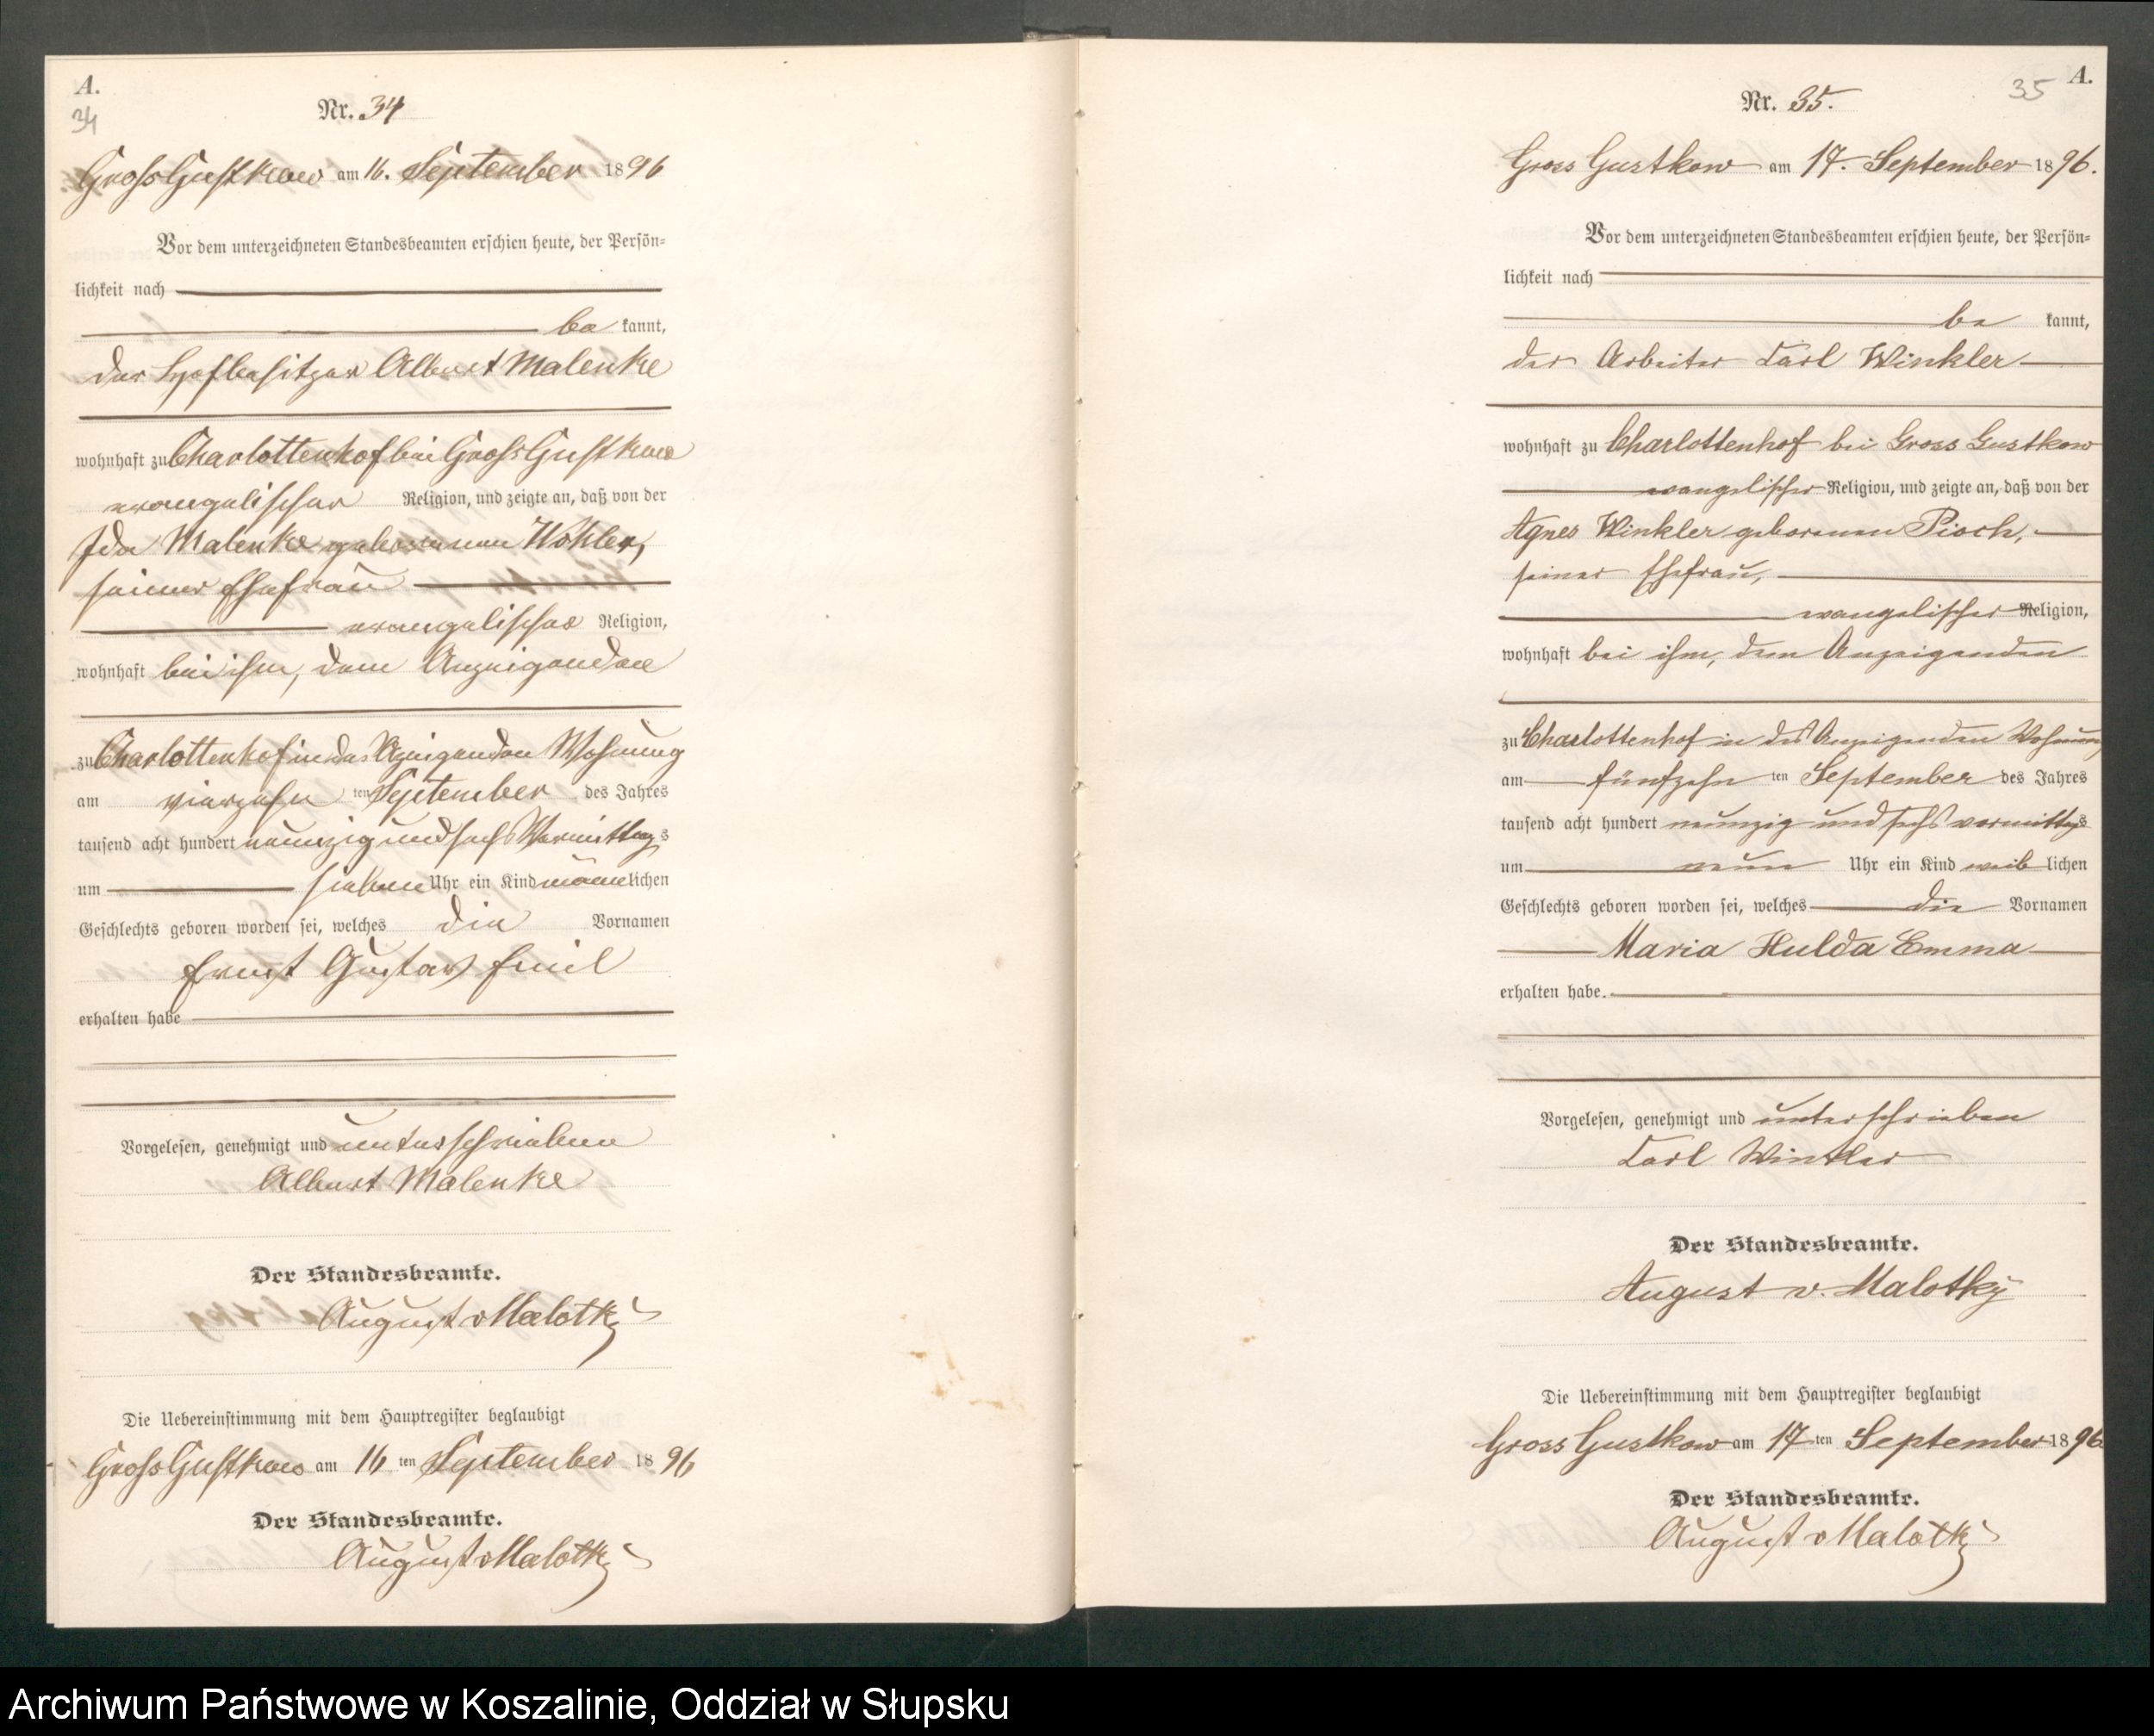 A.
34
Nr. 34
Gross Gustkow am 16. September 1896
Vor dem unterzeichneten Standesbeamten erschien heute, der Persön-
lichkeit nach
be kannt,
der Hofbesitzer Albert Malenke
wohnhaft zu Charlottenhof bei Gross Gustkow
evangelischer Religion, und zeigte an, daß von der
Ida Malenke geborenen Wohler,
seiner Ehefrau
evangelischer Religion,
wohnhaft bei ihm, dem Anzeigenden
zu Charlottenhof in des Anzeigenden Wohnung
am vierzehn ten September des Jahres
tausend acht hundert neunzig und sechs Vormittags
um sieben Uhr ein Kind männlichen
Geschlechts geboren worden sei, welches die Vornamen
Ernst Gustav Emil
erhalten habe
Vorgelesen, genehmigt und unterschrieben
Albert Malenke
Der Standesbeamte.
August v Malotky
Die Uebereinstimmung mit dem Hauptregister beglaubigt
Gross Gustkow am 16 ten September 1896
Der Standesbeamte.
August v Malotky
A.
35
Nr. 35.
Gross Gustkow am 17. September 1896.
Vor dem unterzeichneten Standesbeamten erschien heute, der Persön-
lichkeit nach
be kannt,
der Arbeiter Carl Winkler
wohnhaft zu Charlottenhof bei Gross Gustkow
evangelischer Religion, und zeigte an, daß von der
Agnes Winkler geborenen Pioch,
seiner Ehefrau,
evangelischer Religion,
wohnhaft bei ihm, dem Anzeigenden
zu Charlottenhof in des Anzeigenden Wohnung
am fünfzehn ten September des Jahres
tausend acht hundert neunzig und sechs vormittags
um neun Uhr ein Kind weiblichen
Geschlechts geboren worden sei, welches die Vornamen
Maria Hulda Emma
erhalten habe.
Vorgelesen, genehmigt und unterschrieben
Carl Winkler
Der Standesbeamte.
August v. Malotky
Die Uebereinstimmung mit dem Hauptregister beglaubigt
Gross Gustkow am 17 ten September 1896
Der Standesbeamte.
August v Malotky
Archiwum Państwowe w Koszalinie, Oddział w Słupsku